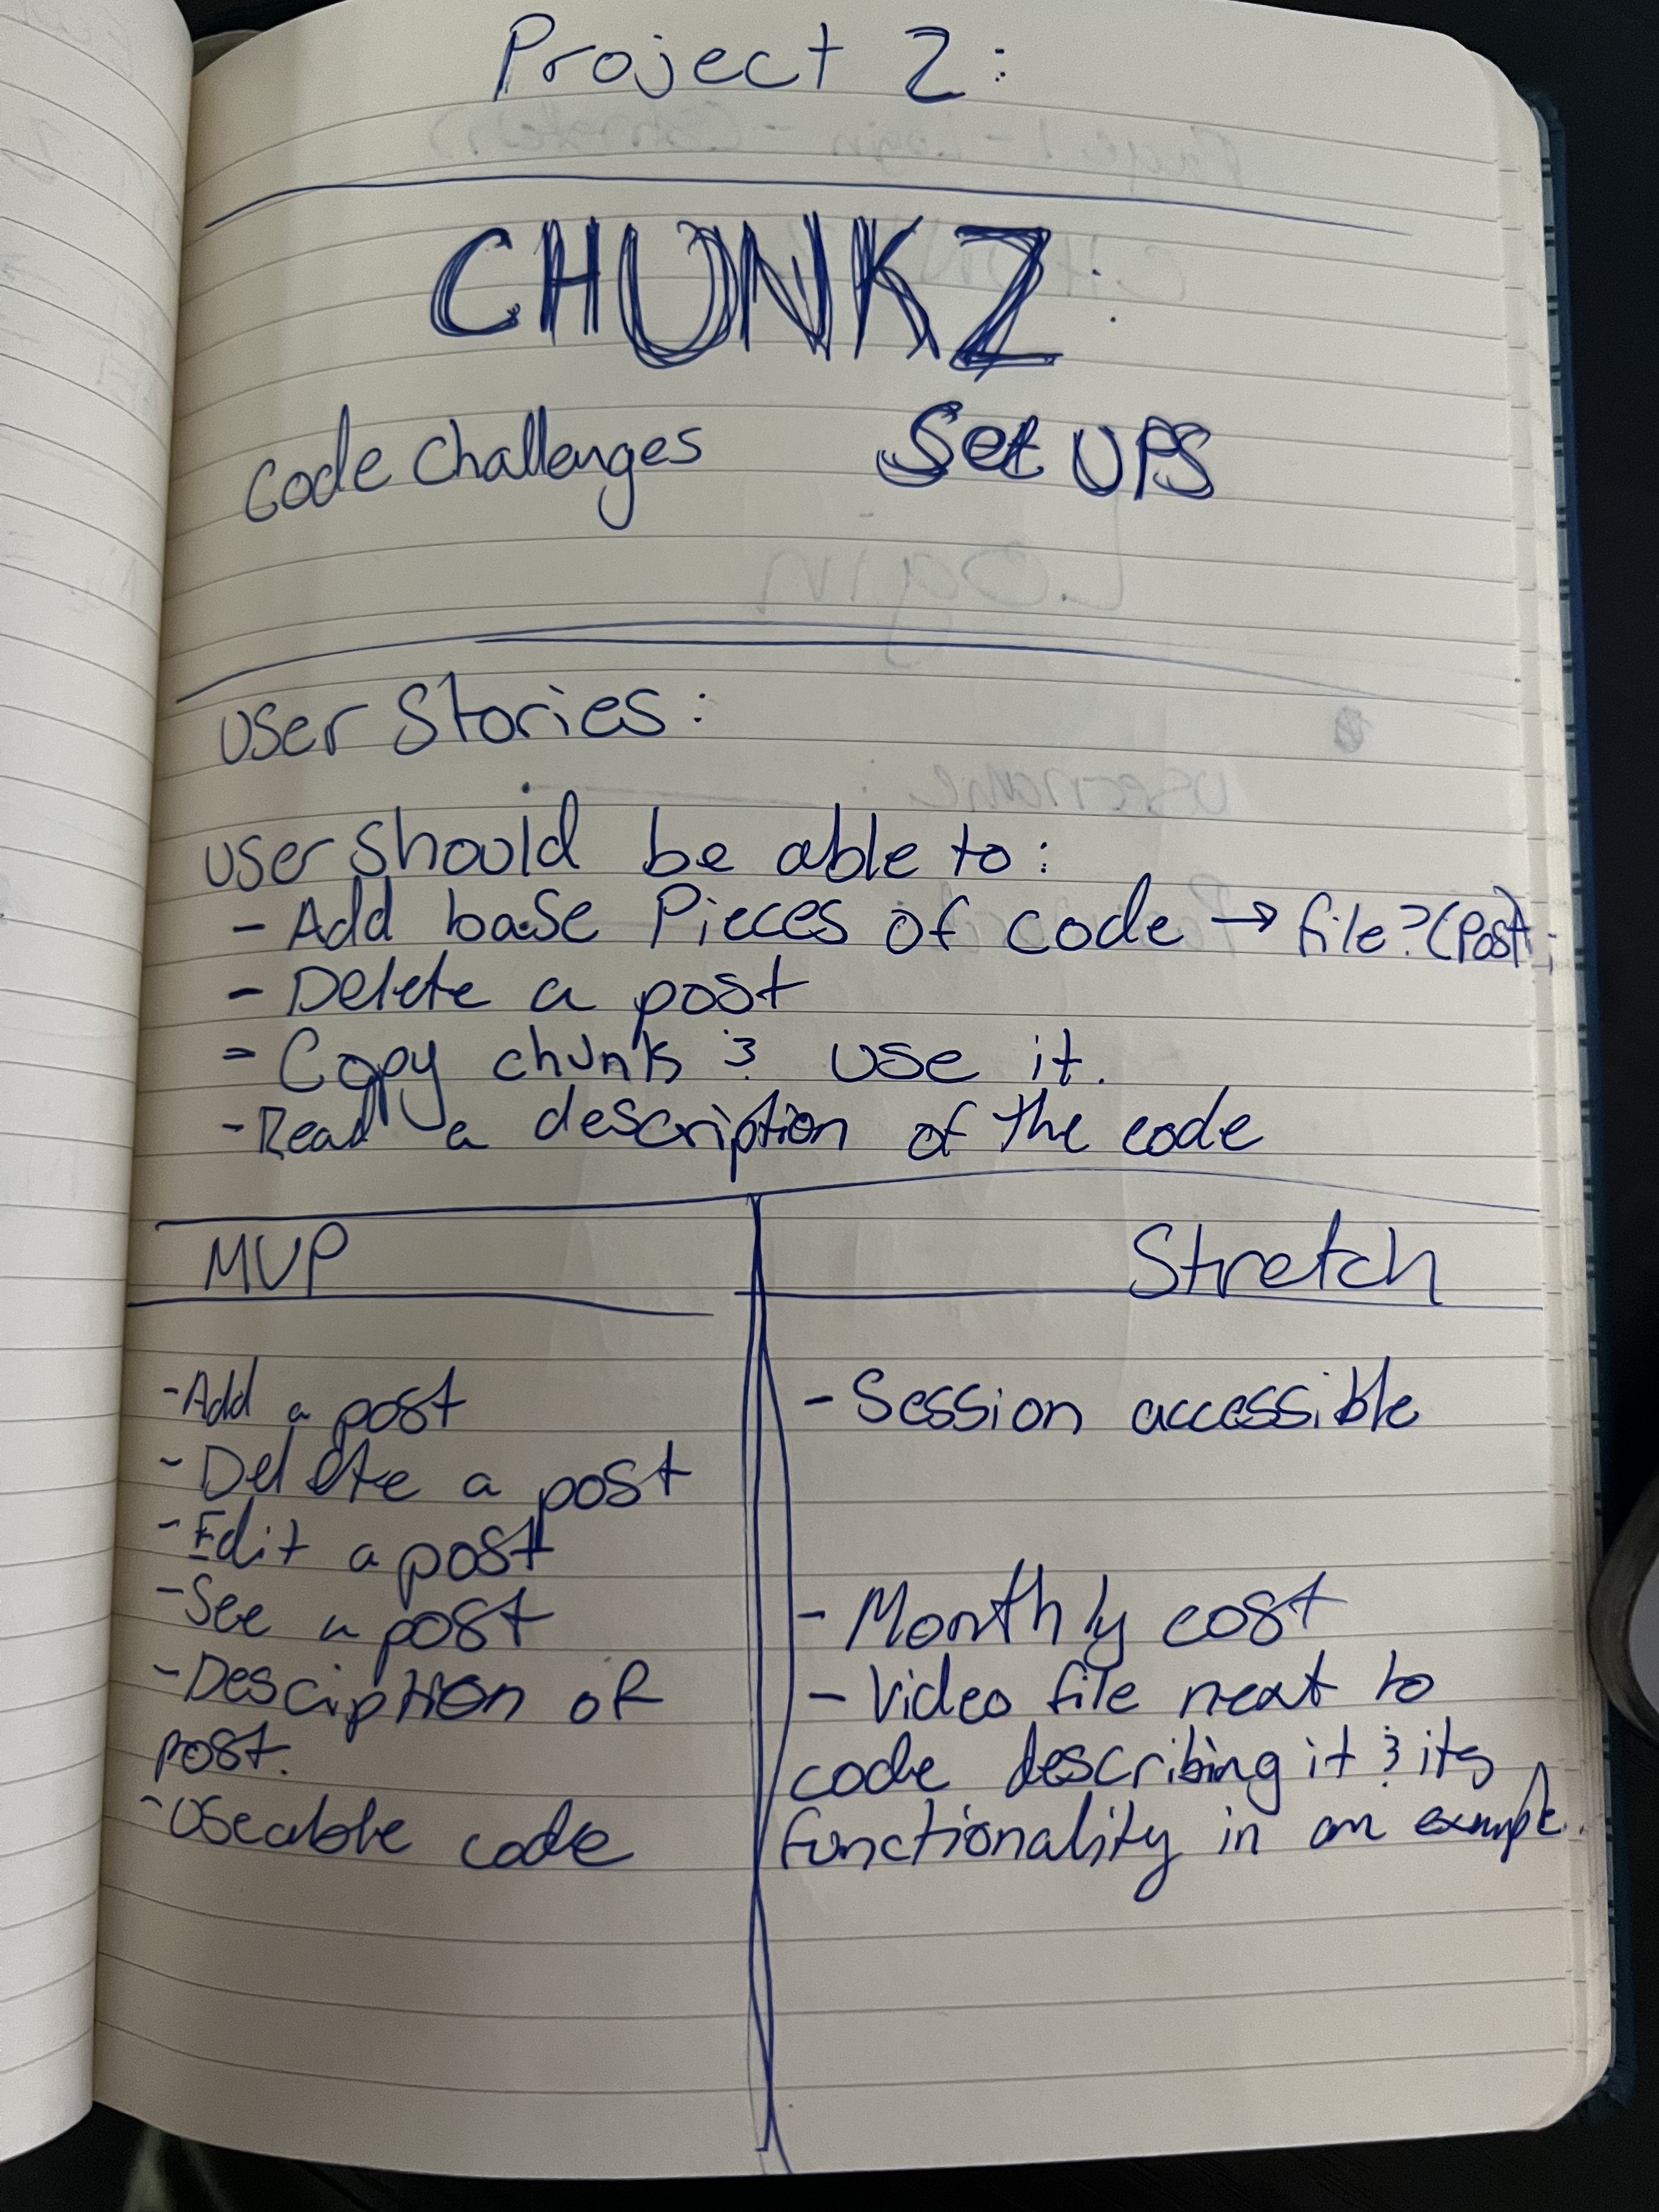 Project 2:
CHUNKZ:
Code Challenges Set UPS
User Stories:
User should be able to:
- Add base Pieces of code → file? (Post)
- Delete a post
- Copy chunk & use it.
- Read a description of the code
MVP Stretch
- Add a post
- Delete a post
- Edit a post
- See a post
- Description of
post.
- Useable code
- Session accessible
- Monthly cost
- Video file next to
code describing it & its
functionality in an example.
Login
username